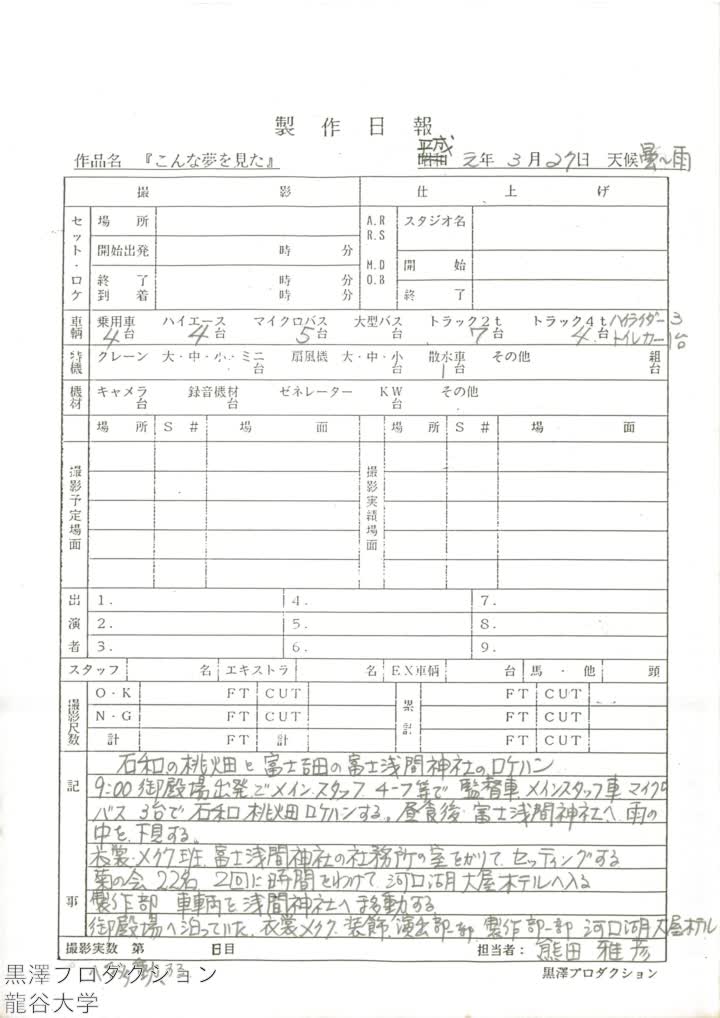 製作日報
作品名 『こんな夢を見た』 昭和 平成 元年 3月27日 天候 曇〜雨
撮影 仕上げ
セット・ロケ 場所 A.R R.S スタジオ名
開始出発 時 分
M.D O.8 開始
終了 時 分
到着 時 分 終了
車輌 乗用車 ハイエース マイクロバス 大型バス トラック2t トラック4t ハイライダー 3
4台 4台 5台 台 7台 4台 トイレカー 1台
特機 クレーン 大・中・小・ミニ 扇風機 大・中・小 散水車 その他 組
台 台 1台 台
機材 キャメラ 録音機材 ゼネレーター KW その他
台 台 台
場所 S# 場面 場所 S# 場面
撮影予定場面 撮影実績場面
出演者 1. 4. 7.
2. 5. 8.
3. 6. 9.
スタッフ 名 エキストラ 名 EX車輌 台 馬・他 頭
撮影尺数 O・K FT CUT 累計 FT CUT
N・G FT CUT FT CUT
計 FT CUT FT CUT
記事
石和の桃畑と富士吉田の富士浅間神社のロケハン
9:00 御殿場出発でメインスタッフ 4-7等で 監督車 メインスタッフ車 マイクロ
バス 3台で石和桃畑ロケハンする。昼食後 富士浅間神社へ、雨の
中を、下見する。
衣裳・メイク班、富士浅間神社の社務所の室をかりて、セッティングする
菊の会 22名 2回に時間をわけて 河口湖大屋ホテルへ入る
製作部 車輌を浅間神社へ移動する
御殿場へ泊っていた、衣裳メイク、装飾、演出部一部、製作部一部 河口湖大屋ホテル
撮影実数 第 日目 担当者：熊田雅彦
へ移動する
黒澤プロダクション
黒澤プロダクション
龍谷大学